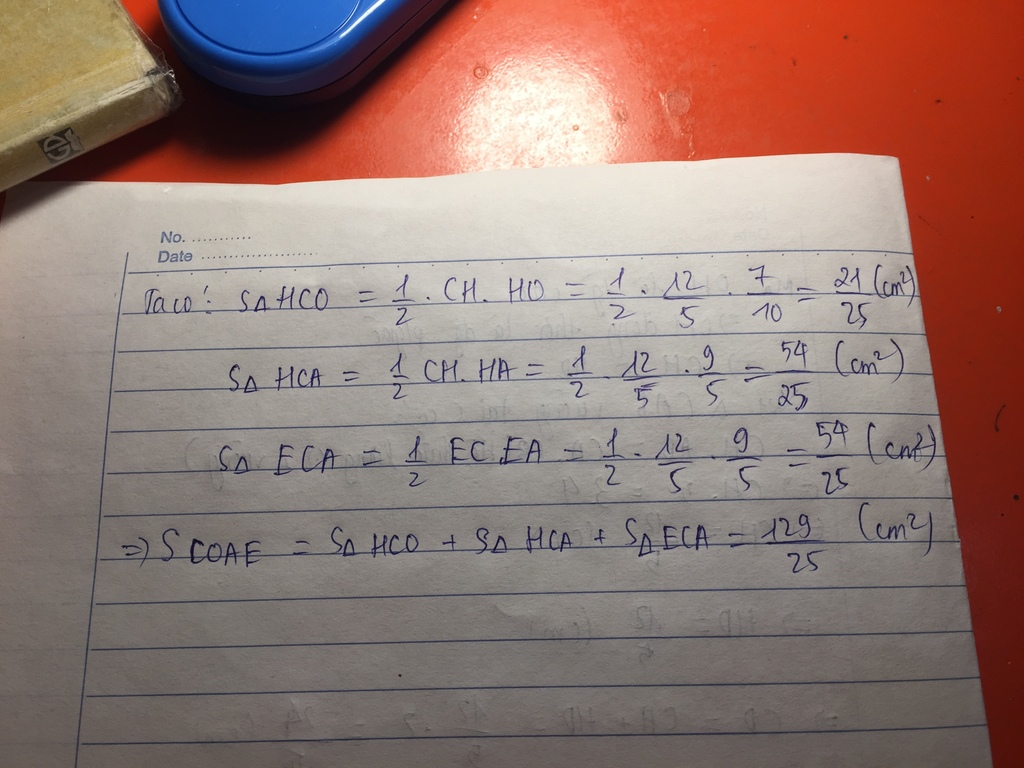 GD
No. ...........
Date ......................
Ta có: SΔHCO = 1/2 . CH. HO = 1/2 . 12/5 . 7/10 = 21/25 (cm²)
SΔ HCA = 1/2 CH. HA = 1/2 . 12/5 . 9/5 = 54/25 (cm²)
SΔ ECA = 1/2 EC.EA = 1/2 . 12/5 . 9/5 = 54/25 (cm²)
=> S COAE = SΔ HCO + SΔ HCA + SΔ ECA = 129/25 (cm²)